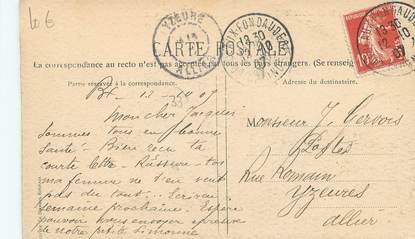 10 €
YZEURE
ALLIER
CARTE POSTALE
La correspondance au recto n'est pas acceptée par tous les pays étrangers. (Se renseigner
Partie réservée à la correspondance.
Adresse du destinataire.
12 - 07
Mon cher Jacques
Sommes tous en bonne
Santé - Bien reçu ta
courte lettre - Rassure-toi
ma femme ne t'en veut
pas du tout... Écrivez
semaine prochaine. Espère
pouvoir vous envoyer épreuve
de notre petite Simonne
Monsieur J. Cervois
Postes
Rue Romain
Yzeures
Allier